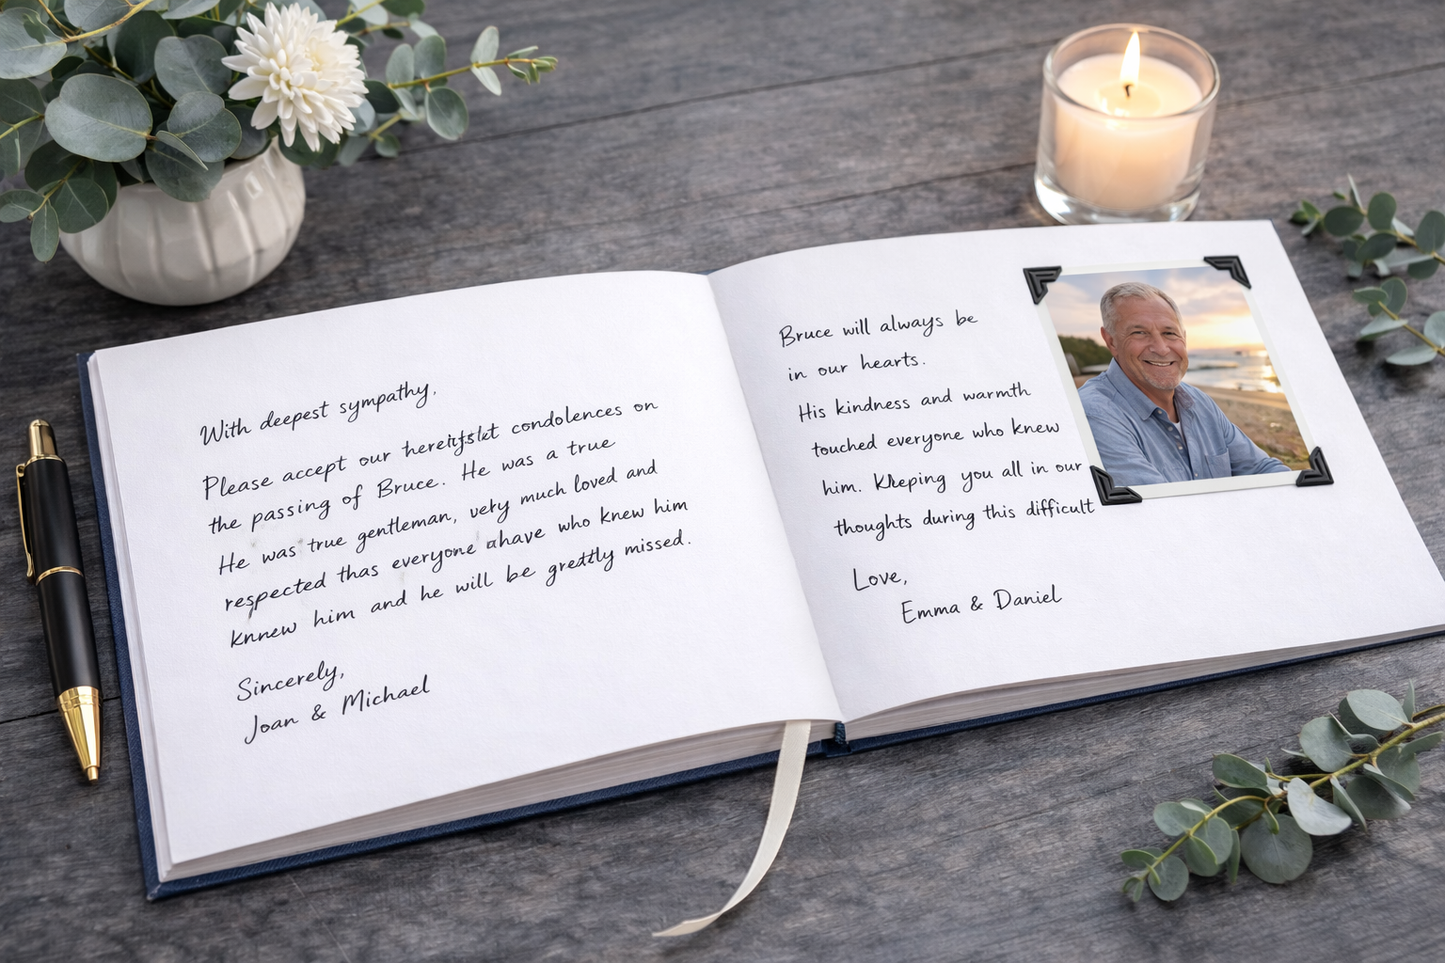 With deepest sympathy,
Please accept our condolences on
the passing of Bruce. He was a true
He was true gentleman, very much loved and
respected thas everyone who knew him
knnew him and he will be greattly missed.
Sincerely,
Joan & Michael
Bruce will always be
in our hearts.
His kindness and warmth
touched everyone who knew
him. you all in our
thoughts during this difficult
Love,
Emma & Daniel